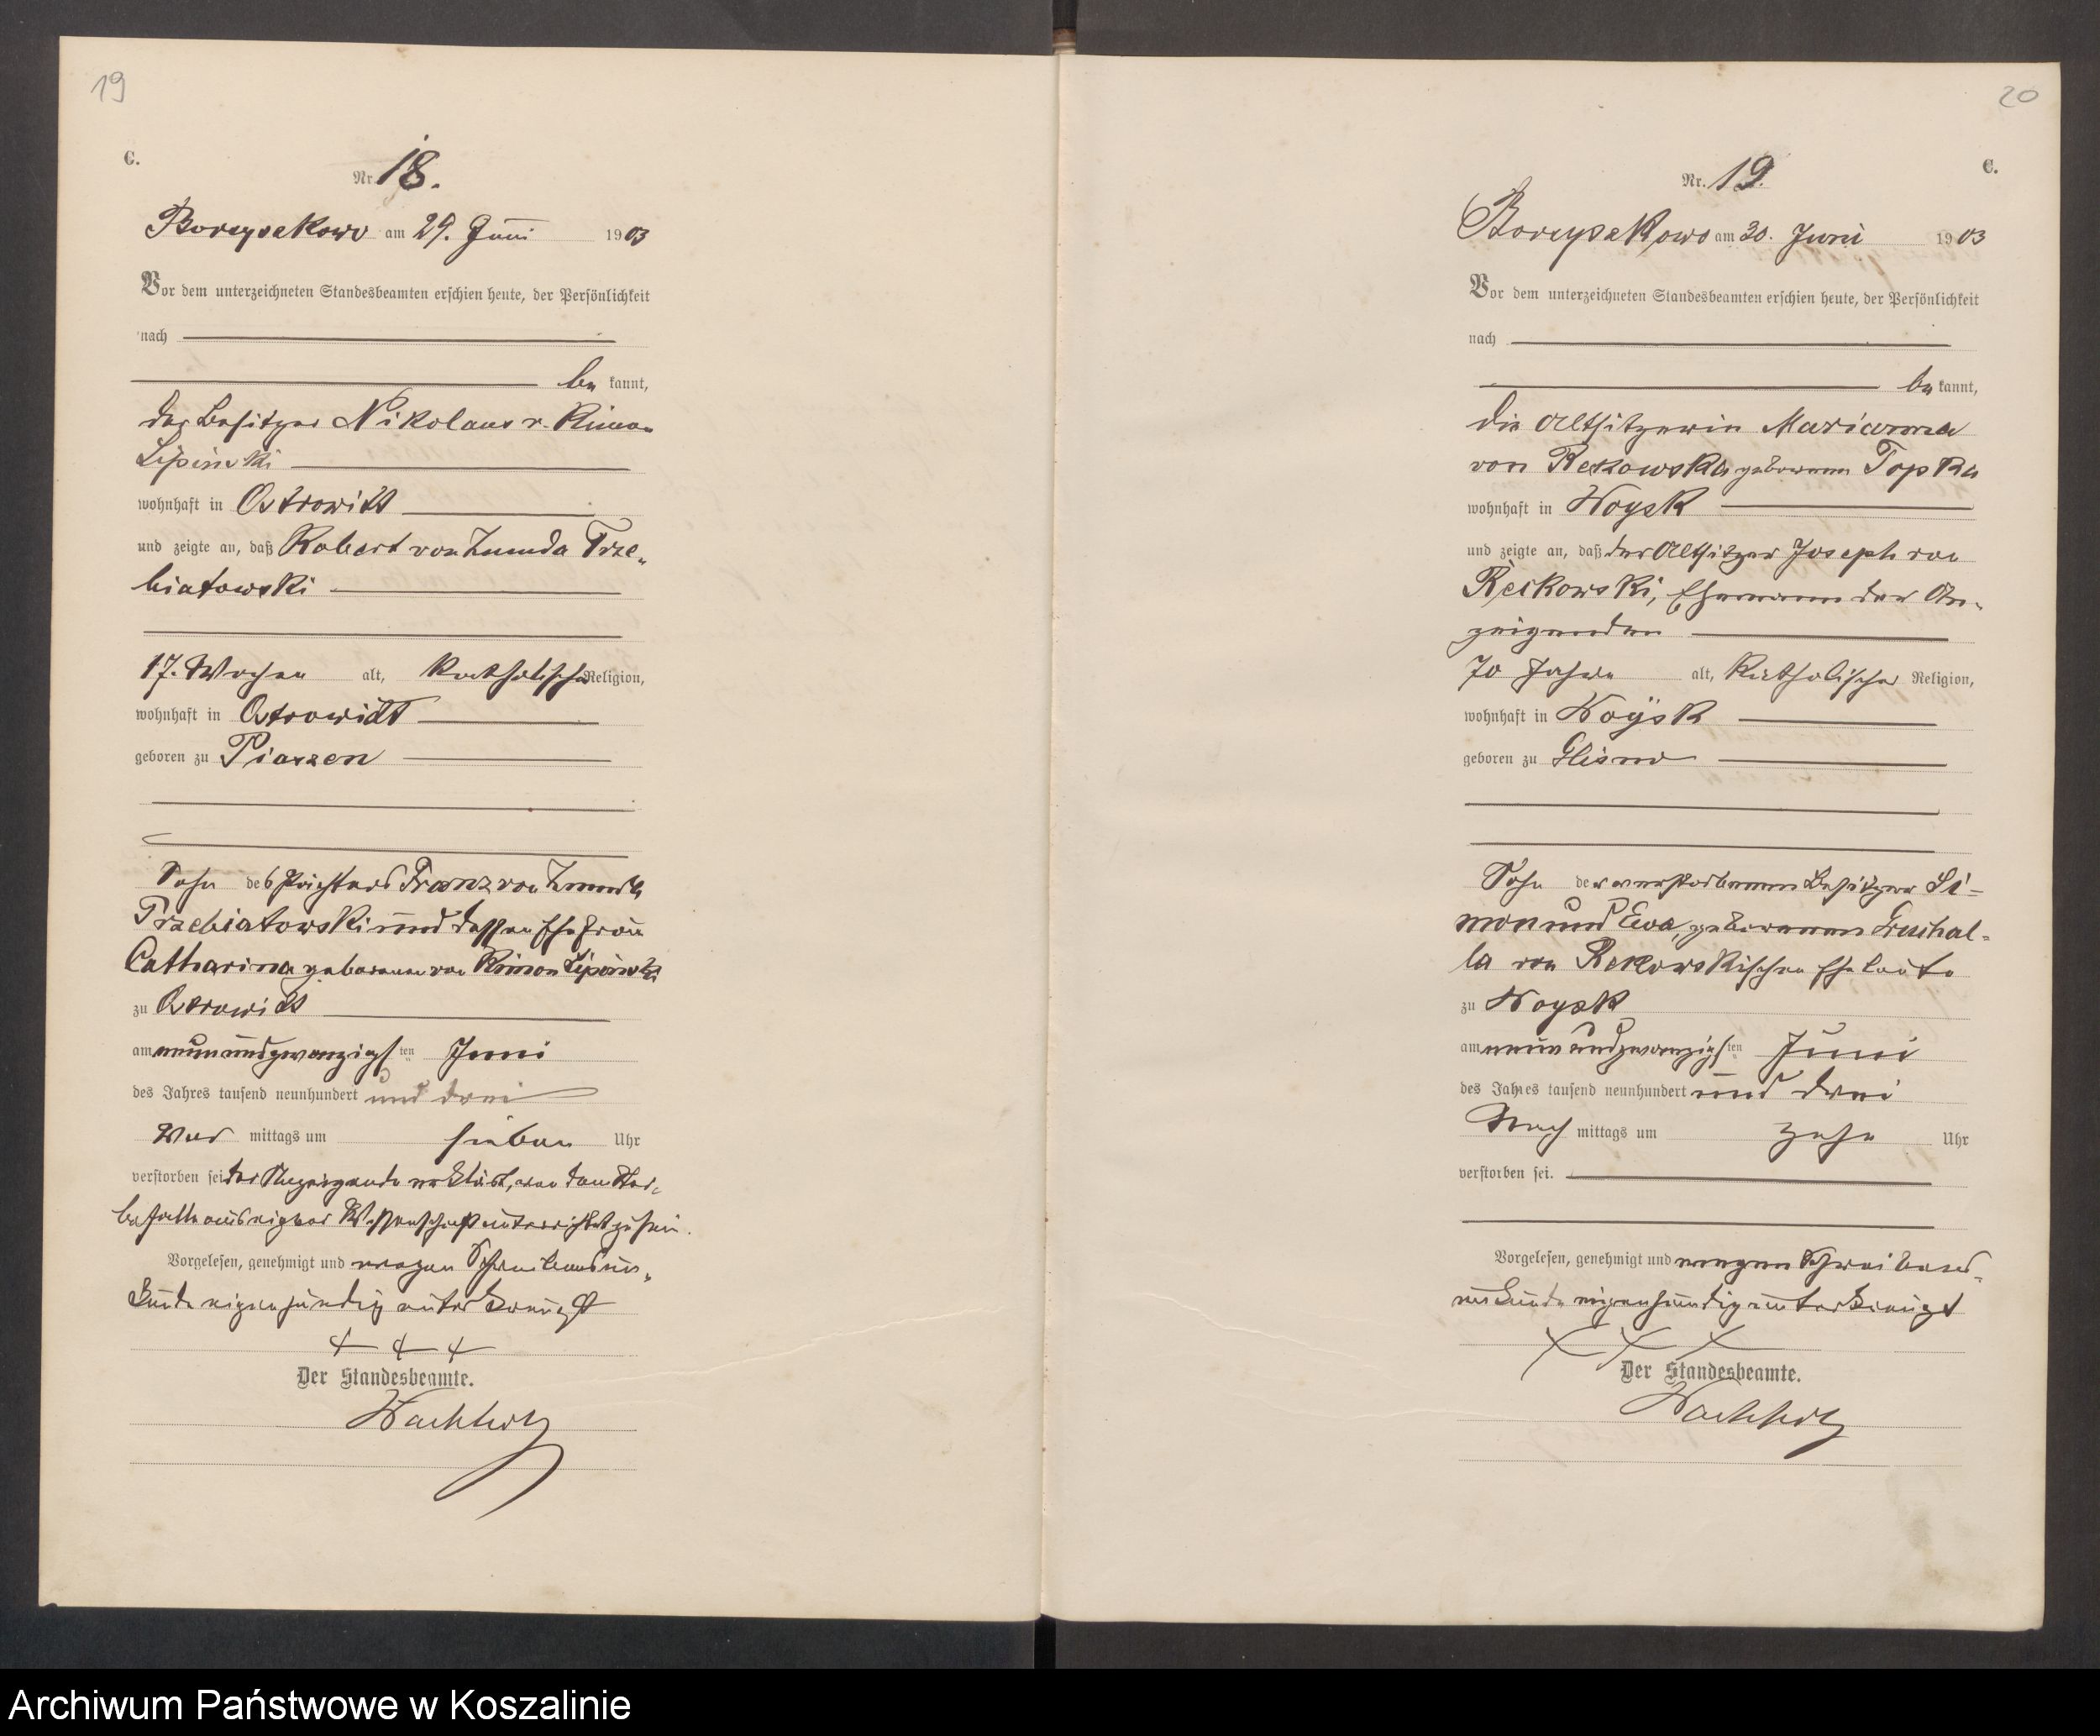 19
C.
Nr. 18.
Borzyskowo am 29. Juni 1903
Vor dem unterzeichneten Standesbeamten erschien heute, der Persönlichkeit
nach
be kannt,
der Besitzer Nikolaus v. Kimon
Lipinski
wohnhaft in Ostrowitt
und zeigte an, daß Robert von Zmuda Trze-
biatowski
17. Wochen alt, katholischer Religion,
wohnhaft in Ostrowitt
geboren zu Piaszen
Sohn des Pächters Franz von Zmuda
Trzebiatowski und dessen Ehefrau
Catharina geborene von Kimon Lipinski
zu Ostrowitt
am neunundzwanzigsten Juni
des Jahres tausend neunhundert und drei
Vor mittags um sieben Uhr
verstorben sei der Anzeigende erklärt, von dem Ster-
befalle aus eigner Wissenschaft unterrichtet zu sein.
Vorgelesen, genehmigt und wegen Schreibensun-
kunde eigenhändig unterkreuzt
+ + +
Der Standesbeamte.
Wachholz
20
C.
Nr. 19.
Borzyskowo am 30. Juni 1903
Vor dem unterzeichneten Standesbeamten erschien heute, der Persönlichkeit
nach
be kannt,
die Altsitzerin Marianna
von Rekowska geborene Topka
wohnhaft in Woysk
und zeigte an, daß der Altsitzer Joseph von
Rekowski, Ehemann der An-
zeigenden
70 Jahre alt, katholischer Religion,
wohnhaft in Woysk
geboren zu Glisno
Sohn der verstorbenen Besitzer Si-
mon und Eva, geborenen
la von Rekowskischen Eheleute
zu Woysk
am neunundzwanzigsten Juni
des Jahres tausend neunhundert und drei
Nach mittags um zehn Uhr
verstorben sei.
Vorgelesen, genehmigt und wegen Schreibens-
unkunde eigenhändig unterkreuzt
+ + +
Der Standesbeamte.
Wachholz
Archiwum Państwowe w Koszalinie